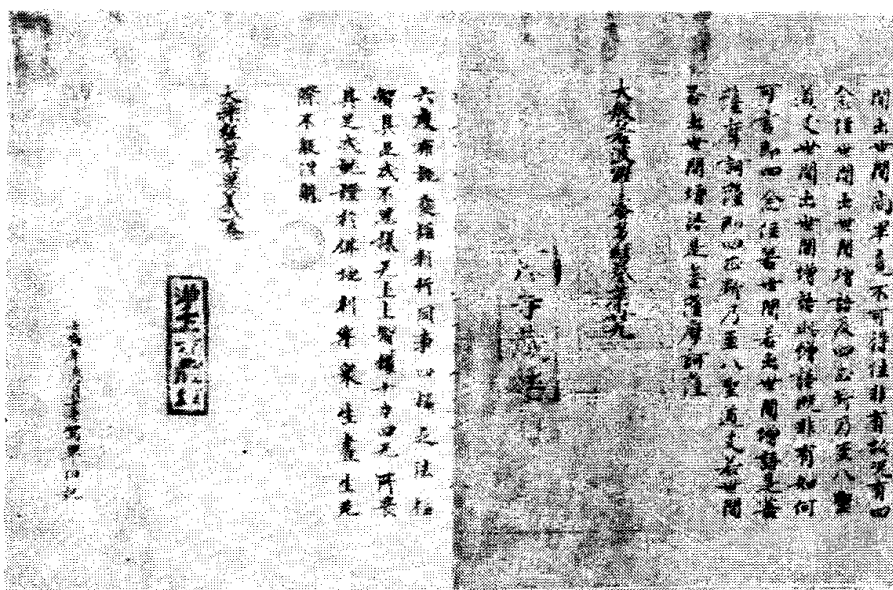 間出世間尚畢竟不可得性非有故況有四
念住世間出世間增語及四正斷乃至八聖
道支世間出世間增語此增語既非有如何
可言即四念住若世間若出世間增語是菩
薩摩訶薩即四正斷乃至八聖道支若世間
若出世間增語是菩薩摩訶薩
大般若波羅蜜多經卷第廿九
六度布施愛語利行同事四攝之法種
智具足成不思議无上上智獲十力四无所畏
具足成就證於佛地利樂衆生盡生死
際不般涅槃
大乘經纂要義一卷
淨土寺藏經